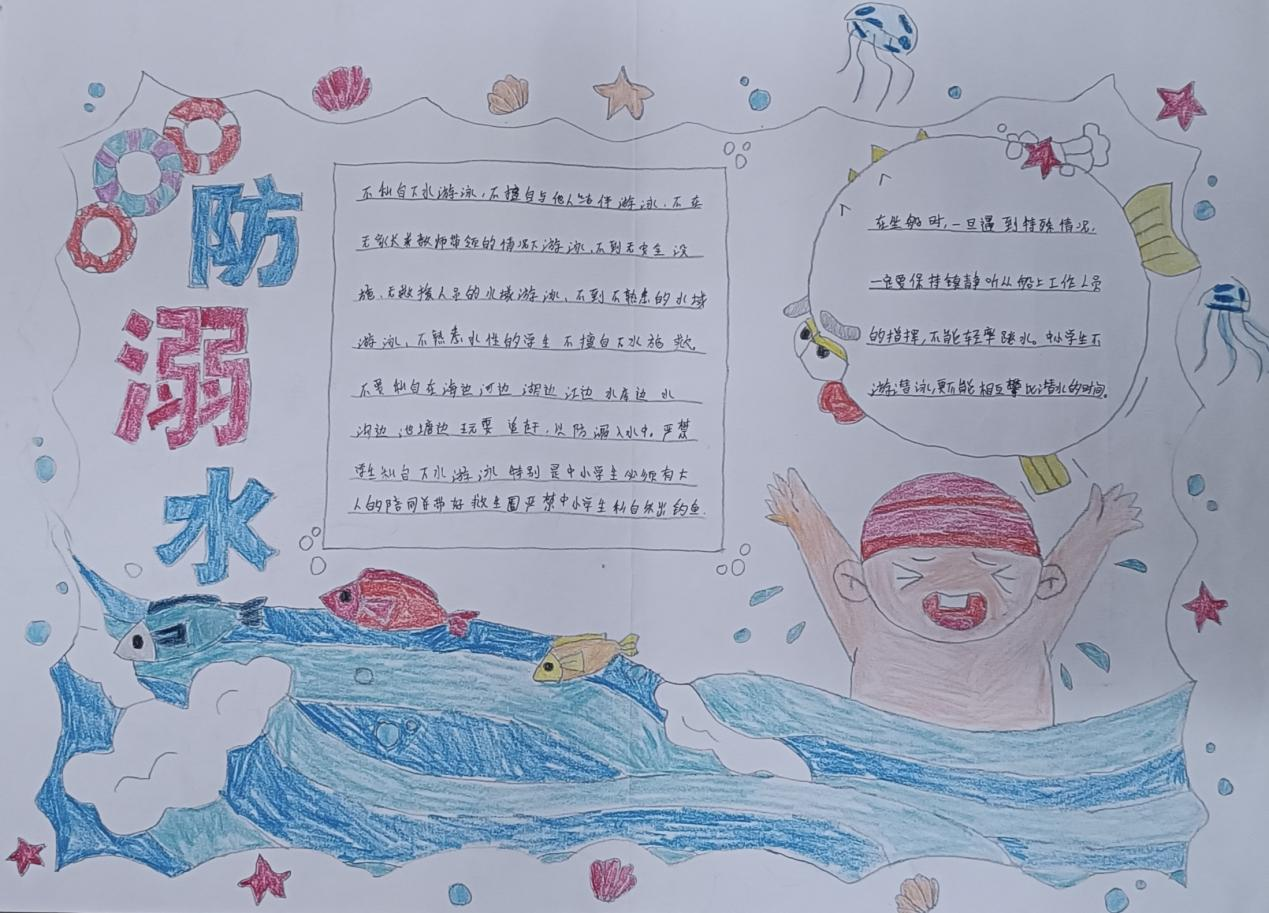 防溺水
不私自下水游泳,不擅自与他人结伴游泳、不在
无家长或教师带领的情况下游泳、不到无安全设
施、无救援人员的水域游泳、不到不熟悉的水域
游泳、不熟悉水性的学生不擅自下水施救.
不要私自在海边河边湖边江边水库边水
沟边池塘边玩耍追赶,以防溺入水中。严禁
学生私自下水游泳特别是中小学生必须有大
人的陪同并带好救生圈严禁中小学生私自外出钓鱼.
在坐船时,一旦遇到特殊情况,
一定要保持镇静听从船上工作人员
的指挥,不能轻率跳水。中小学生不
游潜泳,更不能相互攀比潜水的时间。